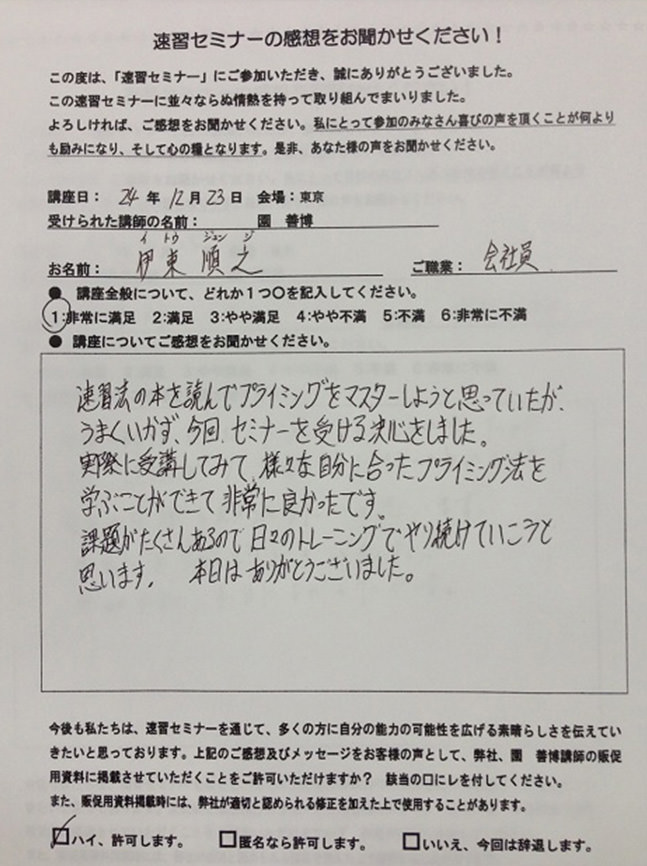 速習セミナーの感想をお聞かせください！
この度は、「速習セミナー」にご参加いただき、誠にありがとうございました。
この速習セミナーに並々ならぬ情熱を持って取り組んでまいりました。
よろしければ、ご感想をお聞かせください。私にとって参加のみなさん喜びの声を頂くことが何より
も励みになり、そして心の糧となります。是非、あなた様の声をお聞かせください。
講座日： 24 年 12 月 23 日 会場：東京
受けられた講師の名前： 園 善博
イ トウ ジュン ジ
お名前： 伊東 順之 ご職業： 会社員
● 講座全般について、どれか１つ〇を記入してください。
1:非常に満足 2:満足 3:やや満足 4:やや不満 5:不満 6:非常に不満
● 講座についてご感想をお聞かせください。
速習法の本を読んでプライミングをマスターしようと思っていたが、
うまくいかず、今回、セミナーを受ける決心をしました。
実際に受講してみて、様々な自分に合ったプライミング法を
学ぶことができて非常に良かったです。
課題がたくさんあるので日々のトレーニングでやり続けていこうと
思います。 本日はありがとうございました。
今後も私たちは、速習セミナーを通じて、多くの方に自分の能力の可能性を広げる素晴らしさを伝えてい
きたいと思っております。上記のご感想及びメッセージをお客様の声として、弊社、園 善博講師の販促
用資料に掲載させていただくことをご許可いただけますか？ 該当の口にレを付してください。
また、販促用資料掲載時には、弊社が適切と認められる修正を加えた上で使用することがあります。
☑ハイ、許可します。 □匿名なら許可します。 □いいえ、今回は辞退します。